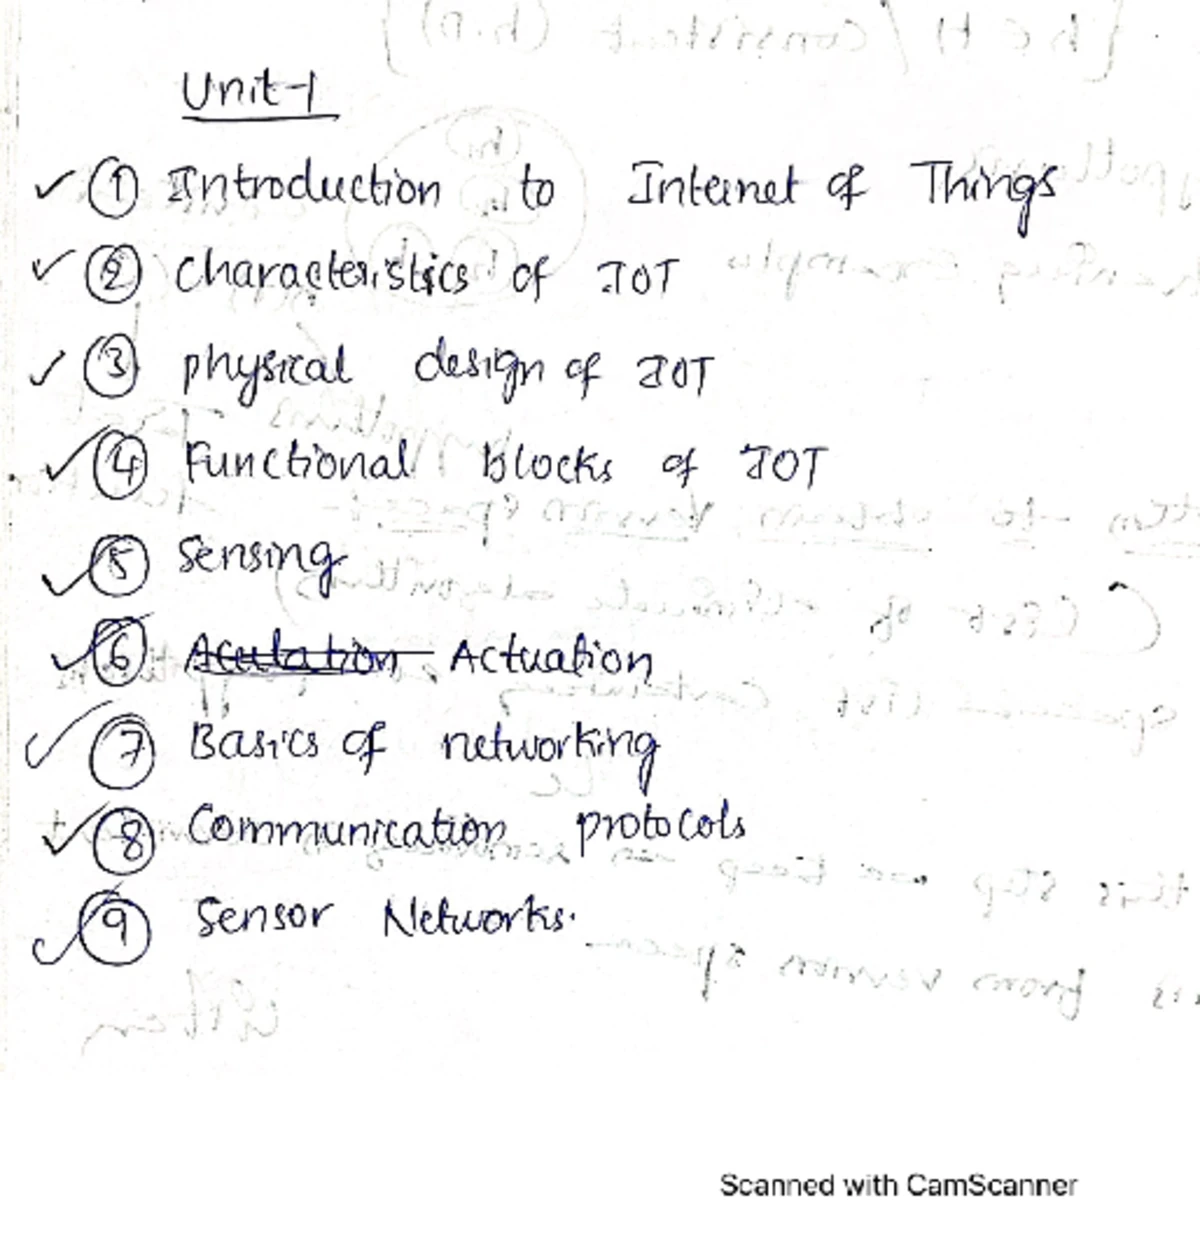 Unit-1
✓ ① Introduction to Internet of Things
✓ ② characteristics of IOT
✓ ③ physical design of IOT
✓ ④ Functional blocks of IOT
✓ ⑤ Sensing
✓ ⑥ Actuation
✓ ⑦ Basics of networking
✓ ⑧ Communication protocols
✓ ⑨ Sensor Networks.
Scanned with CamScanner